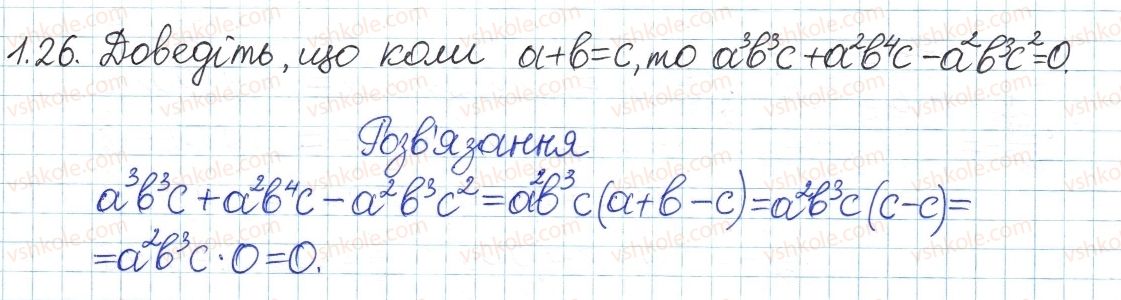 1.26. Доведіть, що коли a+b=c, то a³b³c+a²b⁴c-a²b³c²=0.
Розв'язання
a³b³c+a²b⁴c-a²b³c²=a²b³c(a+b-c)=a²b³c(c-c)=
=a²b³c·0=0.